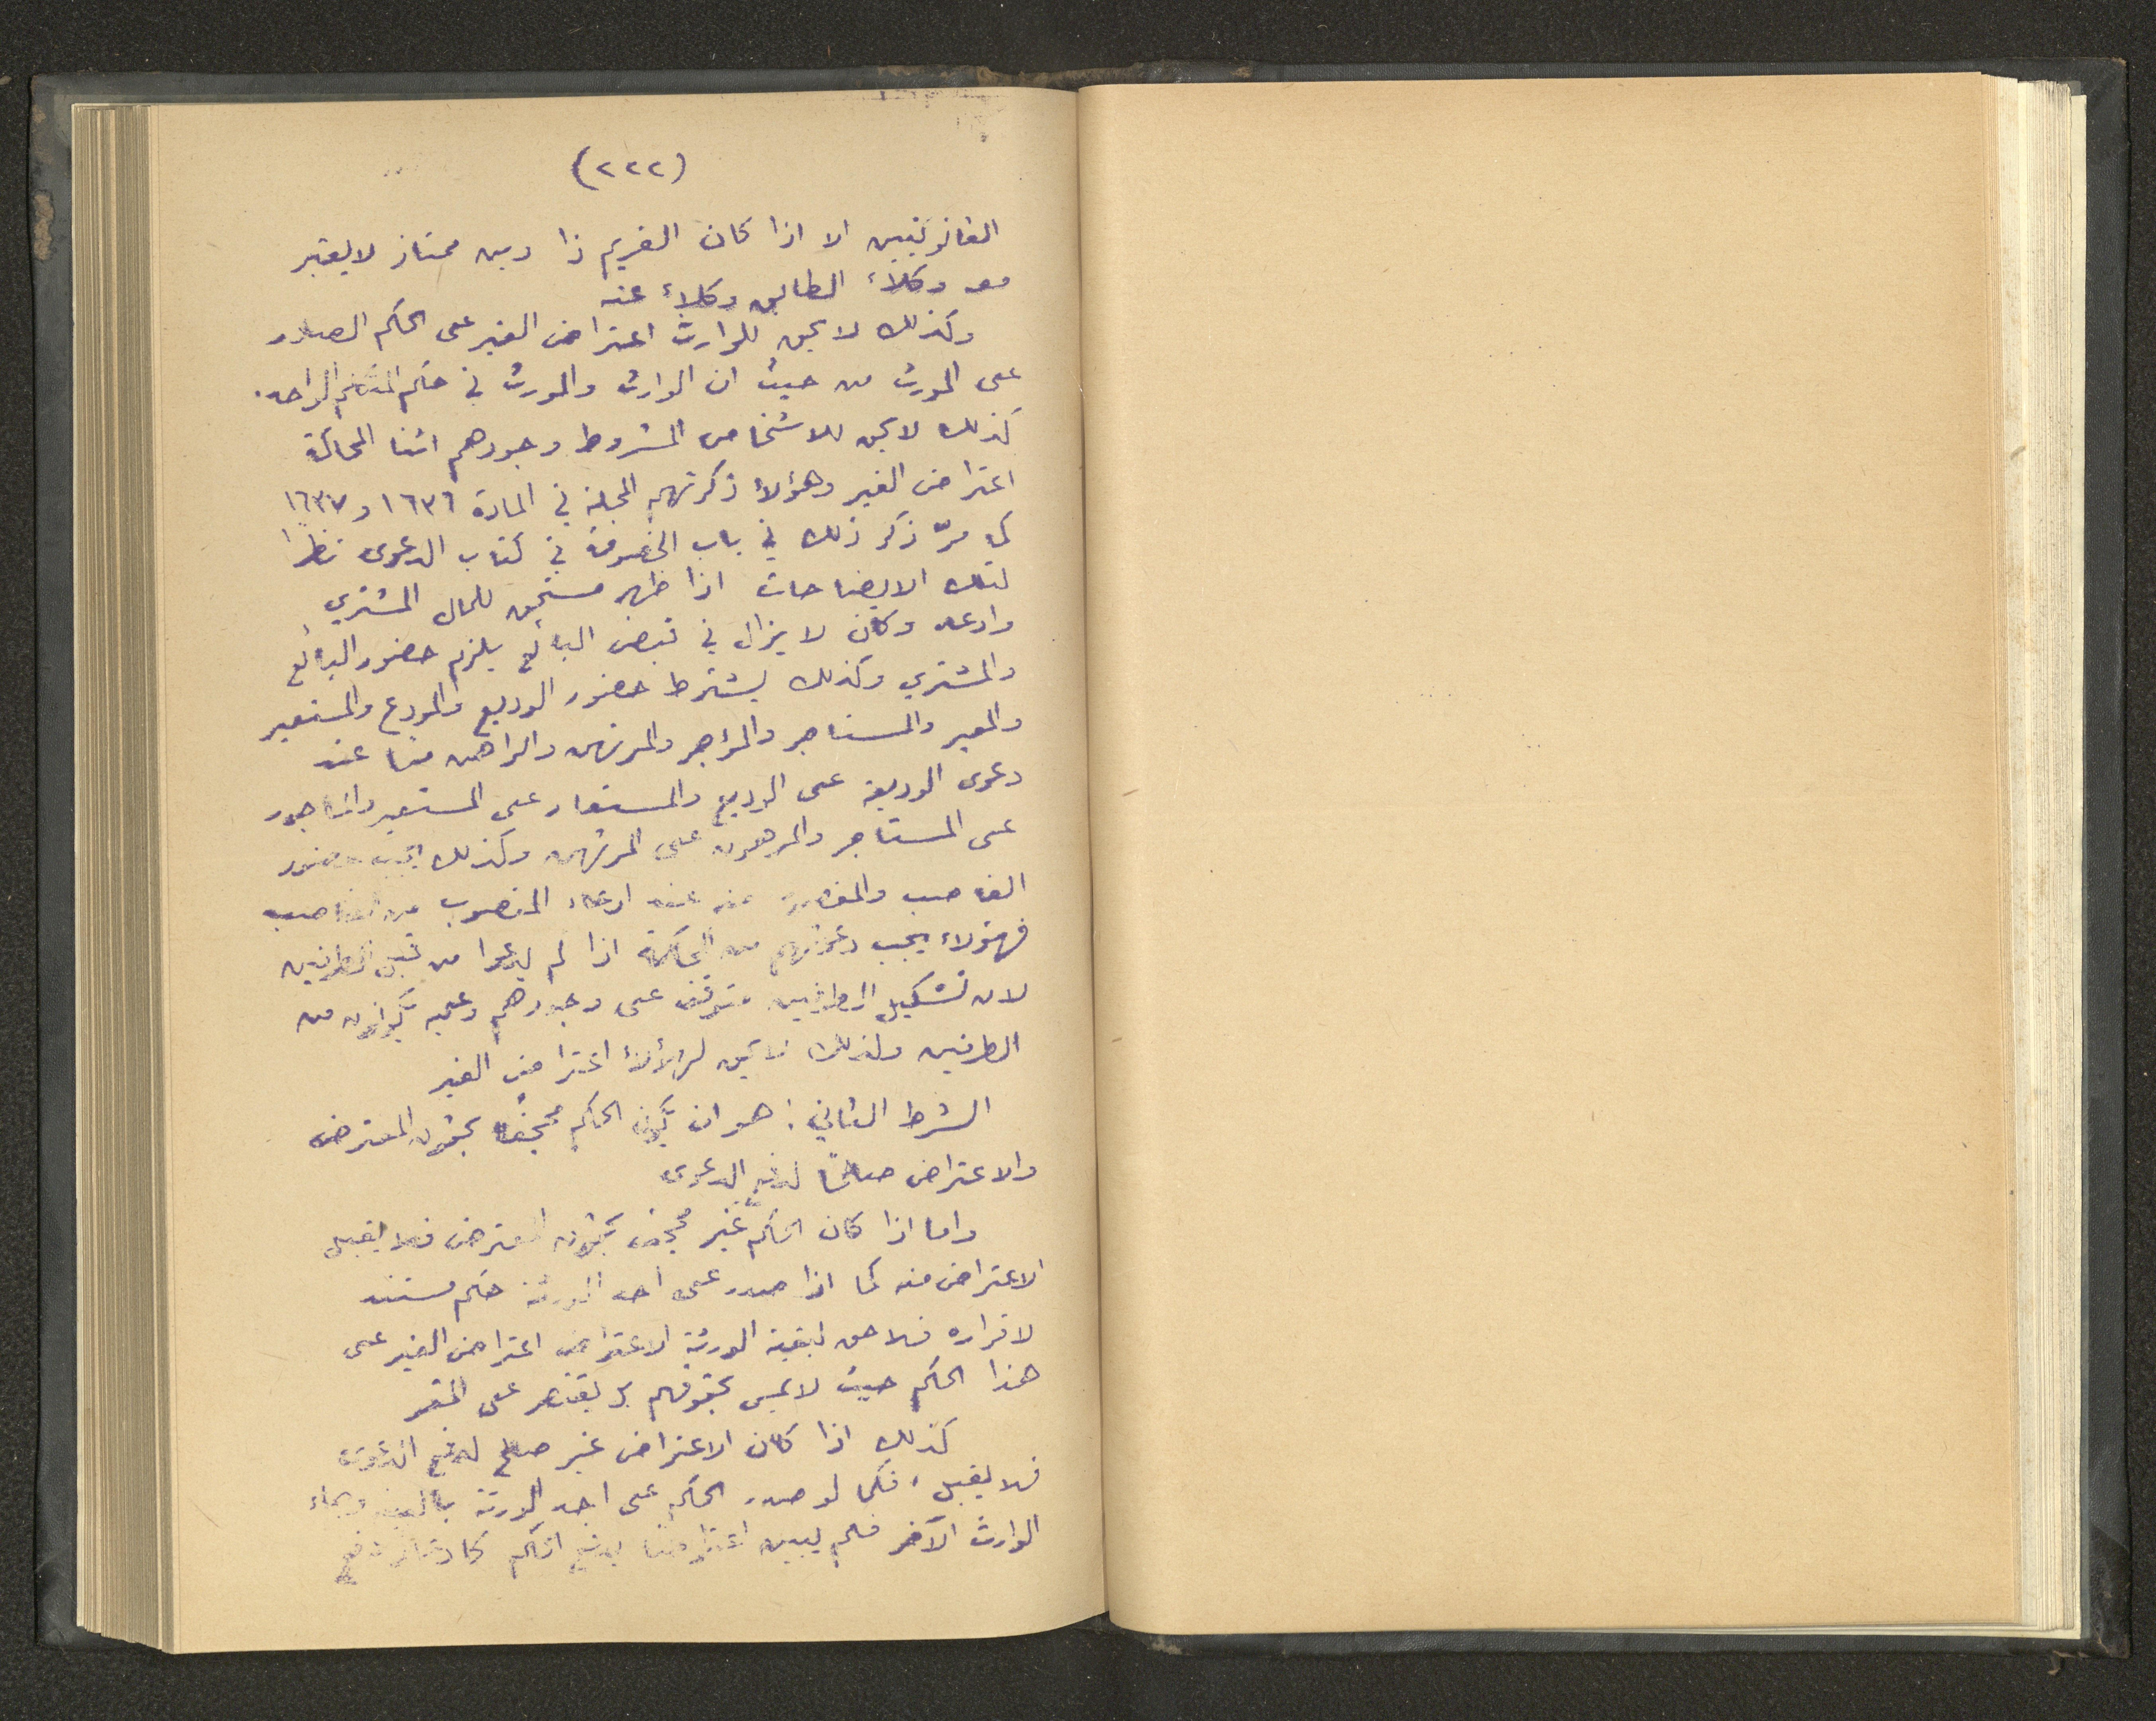 (٢٢٢)
القانونيين الا اذا كان الغريم ذا دين ممتاز لا يعتبر
مع وكلاء الطابق وكلاء عنه
وكذلك لا يحق للوارث اعتراض الغير على الحكم الصادر
على المورث من حيث ان الوارث والمورث في حكم الشخص الواحد.
كذلك لا يحق للاشخاص المشروط وجودهم اثنا المحاكمة
اعتراض الغير وهؤلاء ذكرتهم المجلة في المادة ١٦٣٦ و ١٦٣٧
كما مرّ ذكر ذلك في باب الخصومة في كتاب الدعوى نظرا
لتلك الايضاحات اذا ظهر مستحق للمال المشتري
وادعاه وكان لا يزال في قبض البائع يلزم حضور البائع
والمشتري وكذلك يشترط حضور الوديع والمودع والمستعير
والمعير والمستاجر والمؤجر والمرتهن والراهن معا عند
دعوى الوديعة على الوديع والمستعار على المستعير والماجور
على المستاجر والمرهون على المرتهن وكذلك يجب حضور
الغاصب والمغصوب منه عند ادعاء المغصوب من الغاصب
فهؤلاء يجب دعوتهم من المحكمة اذا لم يدعوا من قبل الطرفين
لان تشكيل الطرفين متوقف على وجودهم وعليه يكونون من
الطرفين ولذلك لا يحق لهؤلاء اعتراض الغير
الشرط الثاني: هو ان يكون الحكم مجحفًا بحقوق المعترض
والاعتراض صالحًا لدفع الدعوى
واما اذا كان الحكم غير مجحف بحقوق المعترض فلا يقبل
الاعتراض منه كما اذا صدر على احد الورثة حكم مستند
لاقراره فلا حق لبقية الورثة الاعتراض اعتراض الغير على
هذا الحكم حيث لا يمس بحقوقهم بل يقتصر على المقر
كذلك اذا كان الاعتراض غير صالح لدفع الدعوى
فلا يقبل، فكما لو صدر الحكم على احد الورثة بالبينة وجاء
الوارث الآخر فلم يبين اعتراضا يدفع الحكم كادعائه دفع